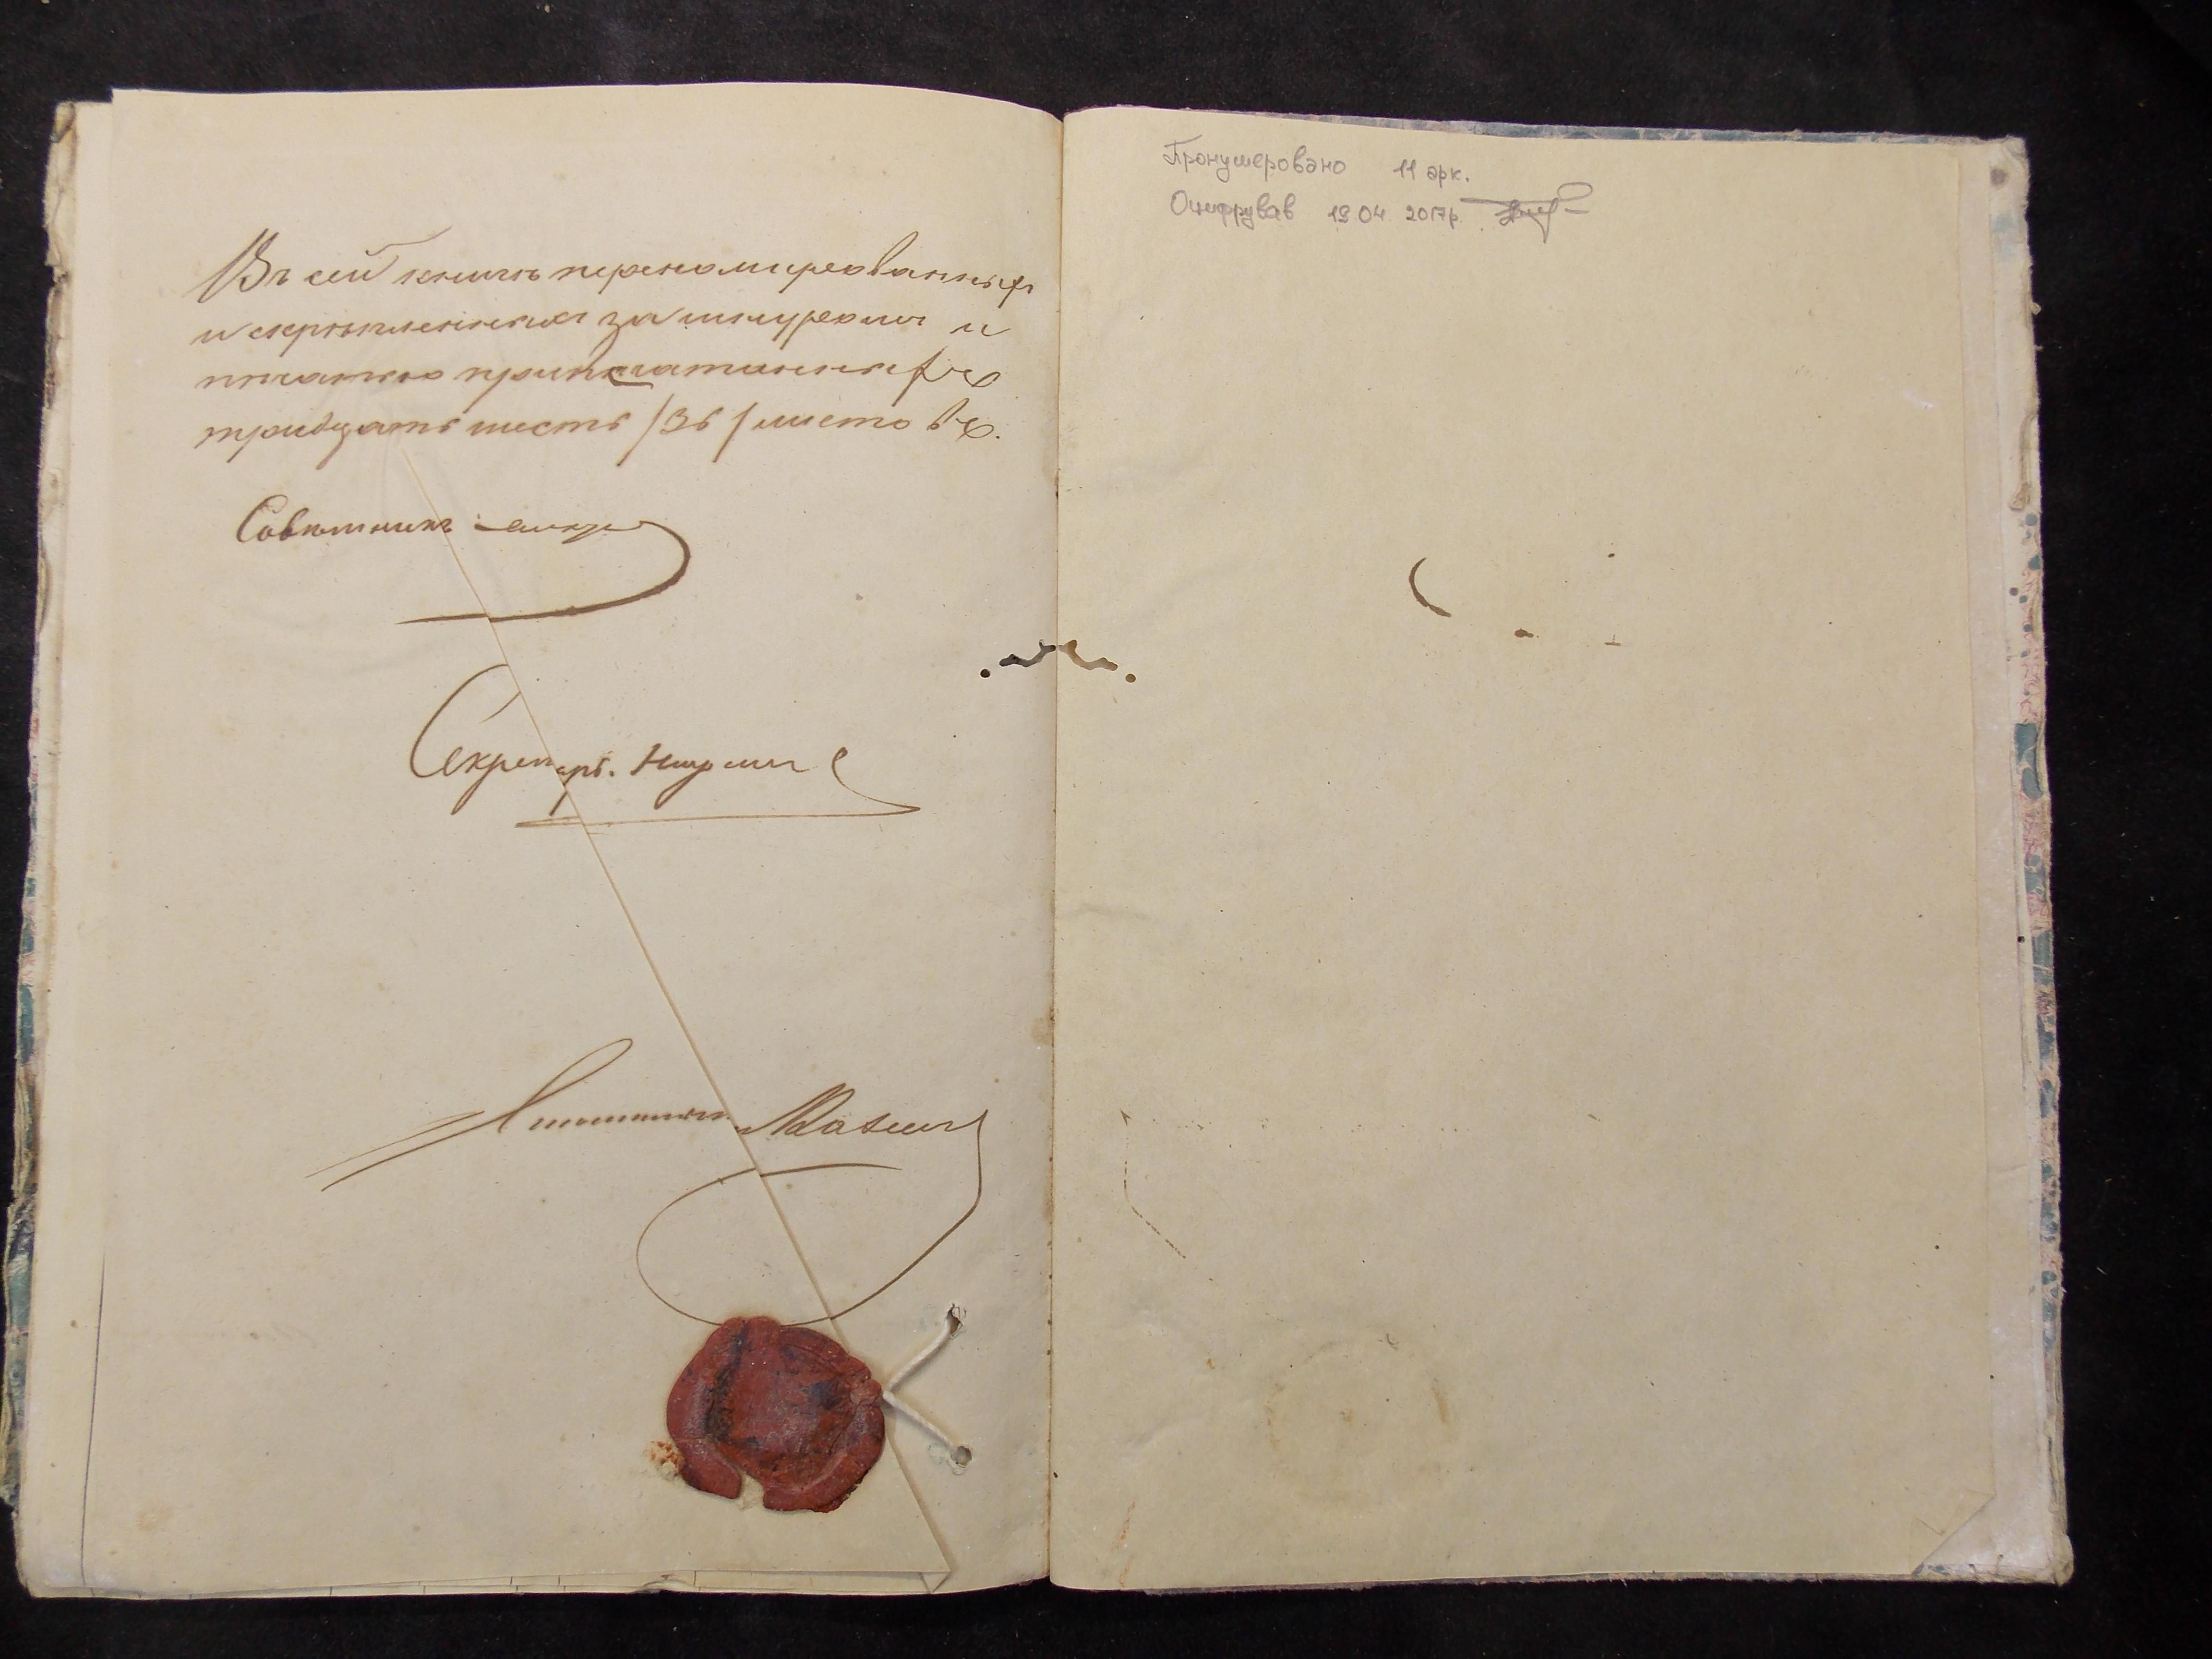 Въ сей книгѣ переномированныхъ
и скрѣпленныхъ за шнуромъ и
печатью припечатанныхъ
тридцать шесть /36/ листовъ.
Совѣтникъ
Секретарь
Пронумеровано 11 арк.
Оцифрував 19 04 2017р.